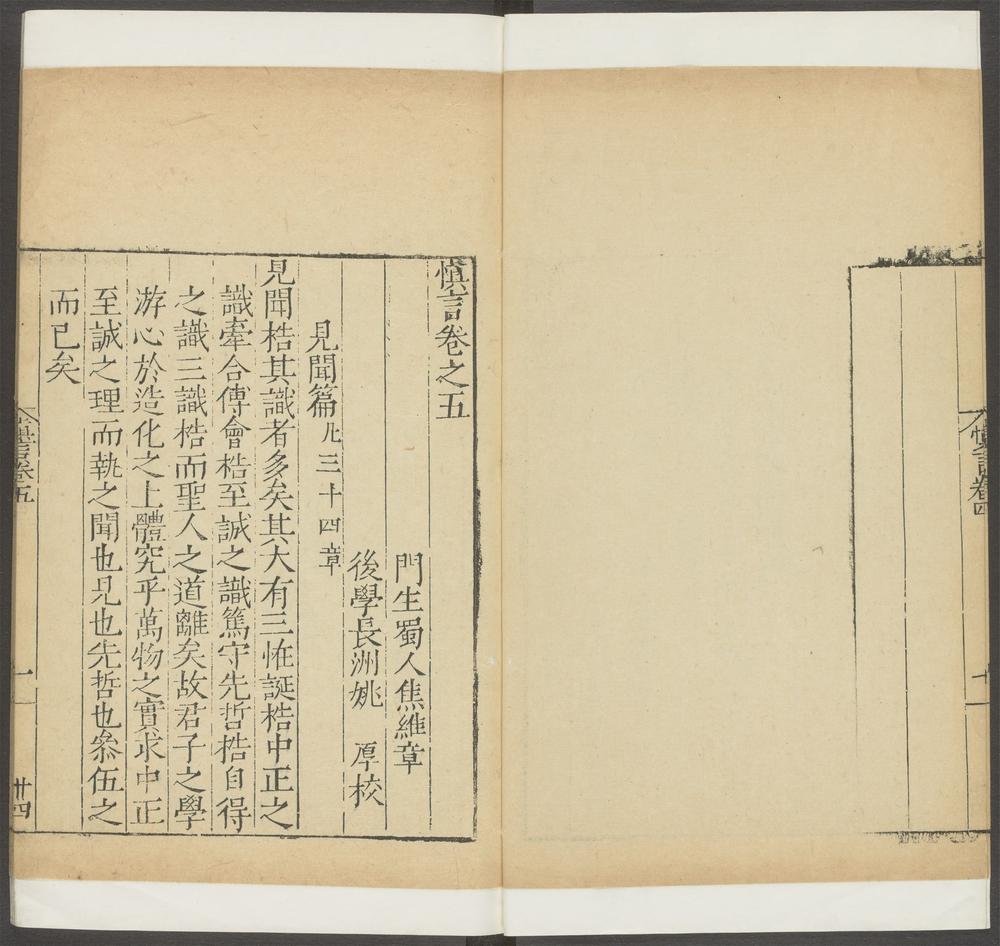 慎言卷四
十一
慎言卷之五
門生蜀人焦維章
後學長洲姚 厚校
見聞篇凡三十四章
見聞梏其識者多矣其大有三怪誕梏中正之
識牽合傅會梏至誠之識篤守先哲梏自得
之識三識梏而聖人之道離矣故君子之學
游心於造化之上體究乎萬物之實求中正
至誠之理而執之聞也見也先哲也叅伍之
而已矣
慎言卷五
一
廿四